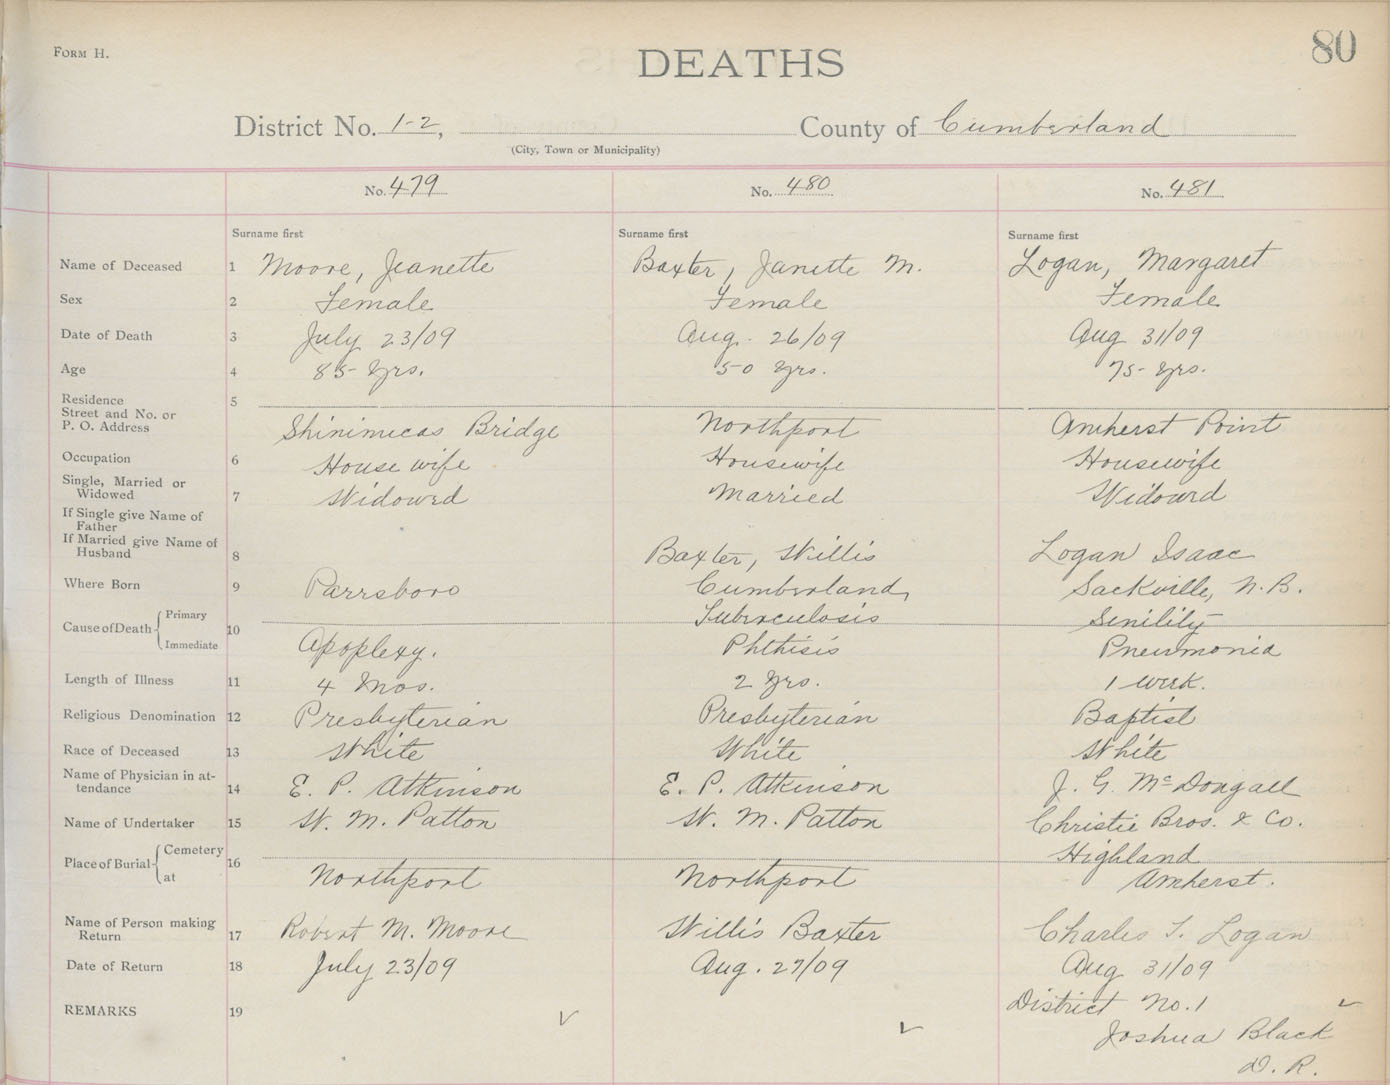 FORM H.
DEATHS
80
District No. 1-2, County of Cumberland
(City, Town or Municipality)
No. 479 No. 480 No. 481
Surname first Surname first Surname first
Name of Deceased 1 Moore, Jeanette Baxter, Janette M. Logan, Margaret
Sex 2 Female Female Female
Date of Death 3 July 23/09 Aug. 26/09 Aug 31/09
Age 4 85 Yrs. 50 Yrs. 75 Yrs.
Residence 5
Street and No. or
P. O. Address Shinimicas Bridge Northport Amherst Point
Occupation 6 House wife Housewife Housewife
Single, Married or
Widowed 7 Widowed Married Widowed
If Single give Name of
Father
If Married give Name of
Husband 8 Baxter, Willis Logan Isaac
Where Born 9 Parrsboro Cumberland, Sackville, N.B.
Cause of Death Primary 10 Tuberculosis Senility
Immediate Apoplexy. Phthisis Pneumonia
Length of Illness 11 4 Mos. 2 Yrs. 1 week.
Religious Denomination 12 Presbyterian Presbyterian Baptist
Race of Deceased 13 White White White
Name of Physician in at-
tendance 14 E. P. Atkinson E. P. Atkinson J. G. McDougall
Name of Undertaker 15 W. M. Patton W. M. Patton Christie Bros. & Co.
Place of Burial Cemetery 16 Highland
at Northport Northport Amherst.
Name of Person making
Return 17 Robert M. Moore Willis Baxter Charles T. Logan
Date of Return 18 July 23/09 Aug. 27/09 Aug 31/09
REMARKS 19 District No. 1
Joshua Black
D. R.